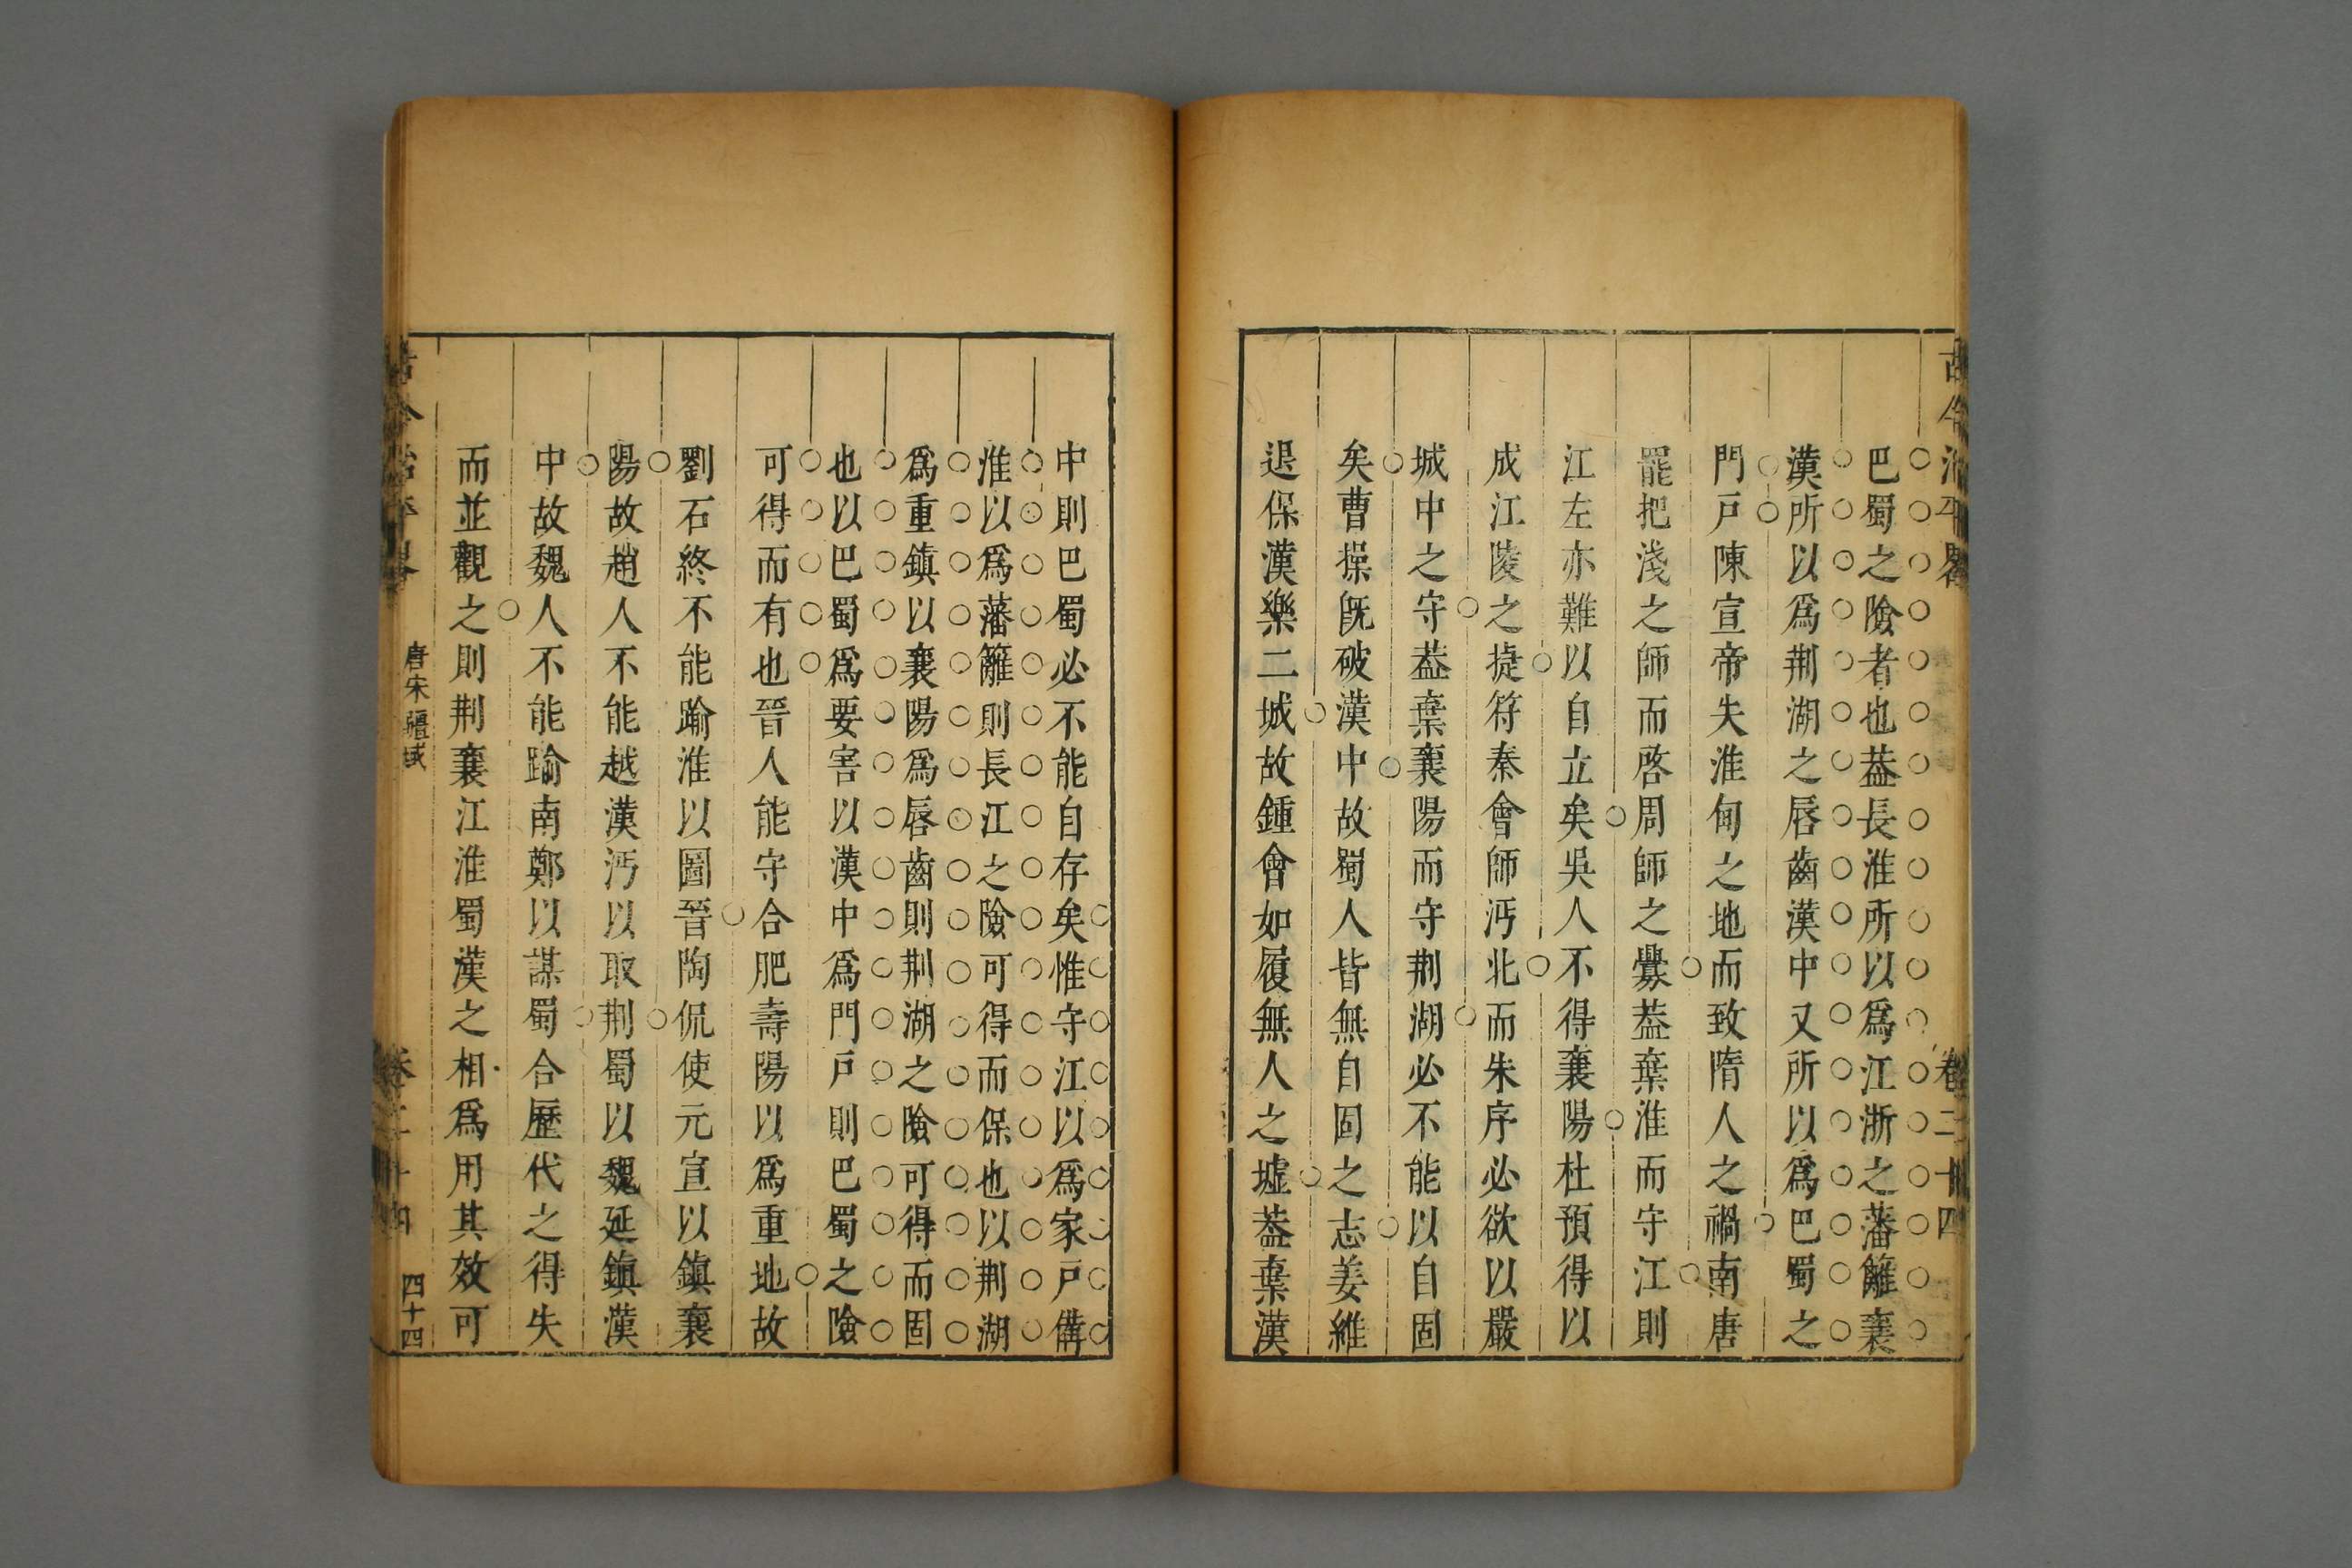 古今治平畧 卷二十四
巴蜀之險者也葢長淮所以爲江浙之藩籬襄
漢所以爲荆湖之唇齒漢中又所以爲巴蜀之
門戸陳宣帝失淮甸之地而致隋人之禍南唐
罷把淺之師而啓周師之釁葢棄淮而守江則
江左亦難以自立矣吳人不得襄陽杜預得以
成江陵之捷符秦會師沔北而朱序必欲以嚴
城中之守葢棄襄陽而守荆湖必不能以自固
矣曹操旣破漢中故蜀人皆無自固之志姜維
退保漢樂二城故鍾會如履無人之墟葢棄漢
中則巴蜀必不能自存矣惟守江以爲家戸備
淮以爲藩籬則長江之險可得而保也以荆湖
爲重鎮以襄陽爲唇齒則荆湖之險可得而固
也以巴蜀爲要害以漢中爲門戸則巴蜀之險
可得而有也晉人能守合肥壽陽以爲重地故
劉石終不能踰淮以圖晉陶侃使元宣以鎮襄
陽故趙人不能越漢沔以取荆蜀以魏延鎮漢
中故魏人不能踰南鄭以謀蜀合歷代之得失
而並觀之則荆襄江淮蜀漢之相爲用其效可
古今治平畧 唐宋疆域 卷二十四 四十四